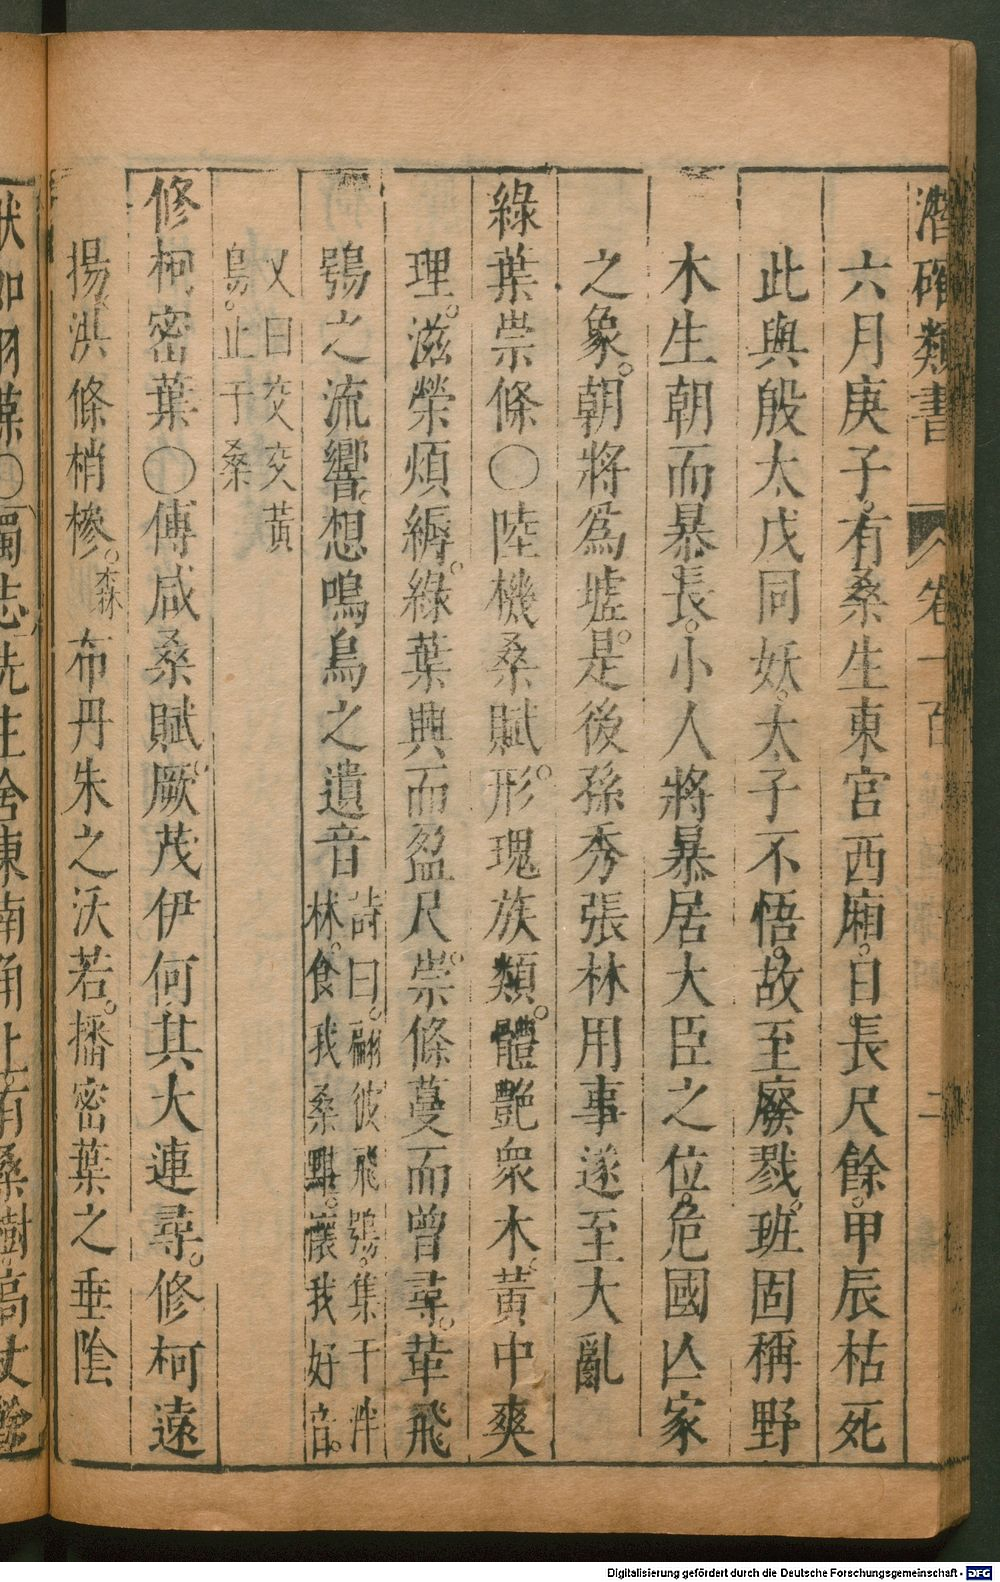 潛確類書 卷一百 二
六月庚子。有桑生東宮西廂。日長尺餘。甲辰枯死
此與殷太戊同妖。太子不悟。故至廢戮。班固稱野
木生朝而暴長。小人將暴居大臣之位。危國亾家
之象。朝將爲墟。是後孫秀張林用事遂至大亂
綠葉崇條○陸機桑賦。形瑰族類。體艷衆木。黃中爽
理。滋榮煩縟。綠葉興而盈尺。崇條蔓而曾尋。華飛
鴞之流響。想鳴鳥之遺音
詩曰。翩彼飛鴞。集于泮
林。食我桑黮。懷我好音。
又曰交交黃
鳥。止于桑
修柯密葉○傅咸桑賦。厥茂伊何其大連尋。修柯遠
揚。洪條梢槮。森布丹朱之沃若。播密葉之垂陰
Digitalisierung gefördert durch die Deutsche Forschungsgemeinschaft - DFG